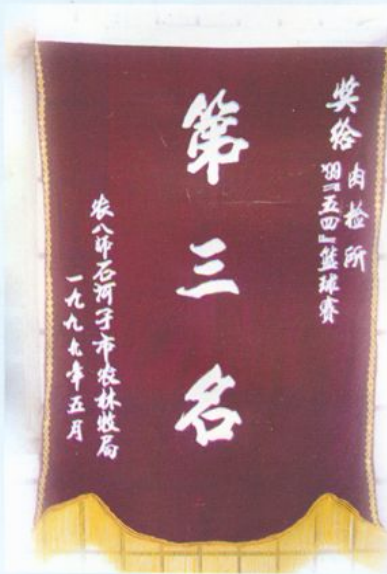 奖给肉检所
'99『五四』篮球赛
第三名
农八师石河子市农林牧局
一九九九年五月